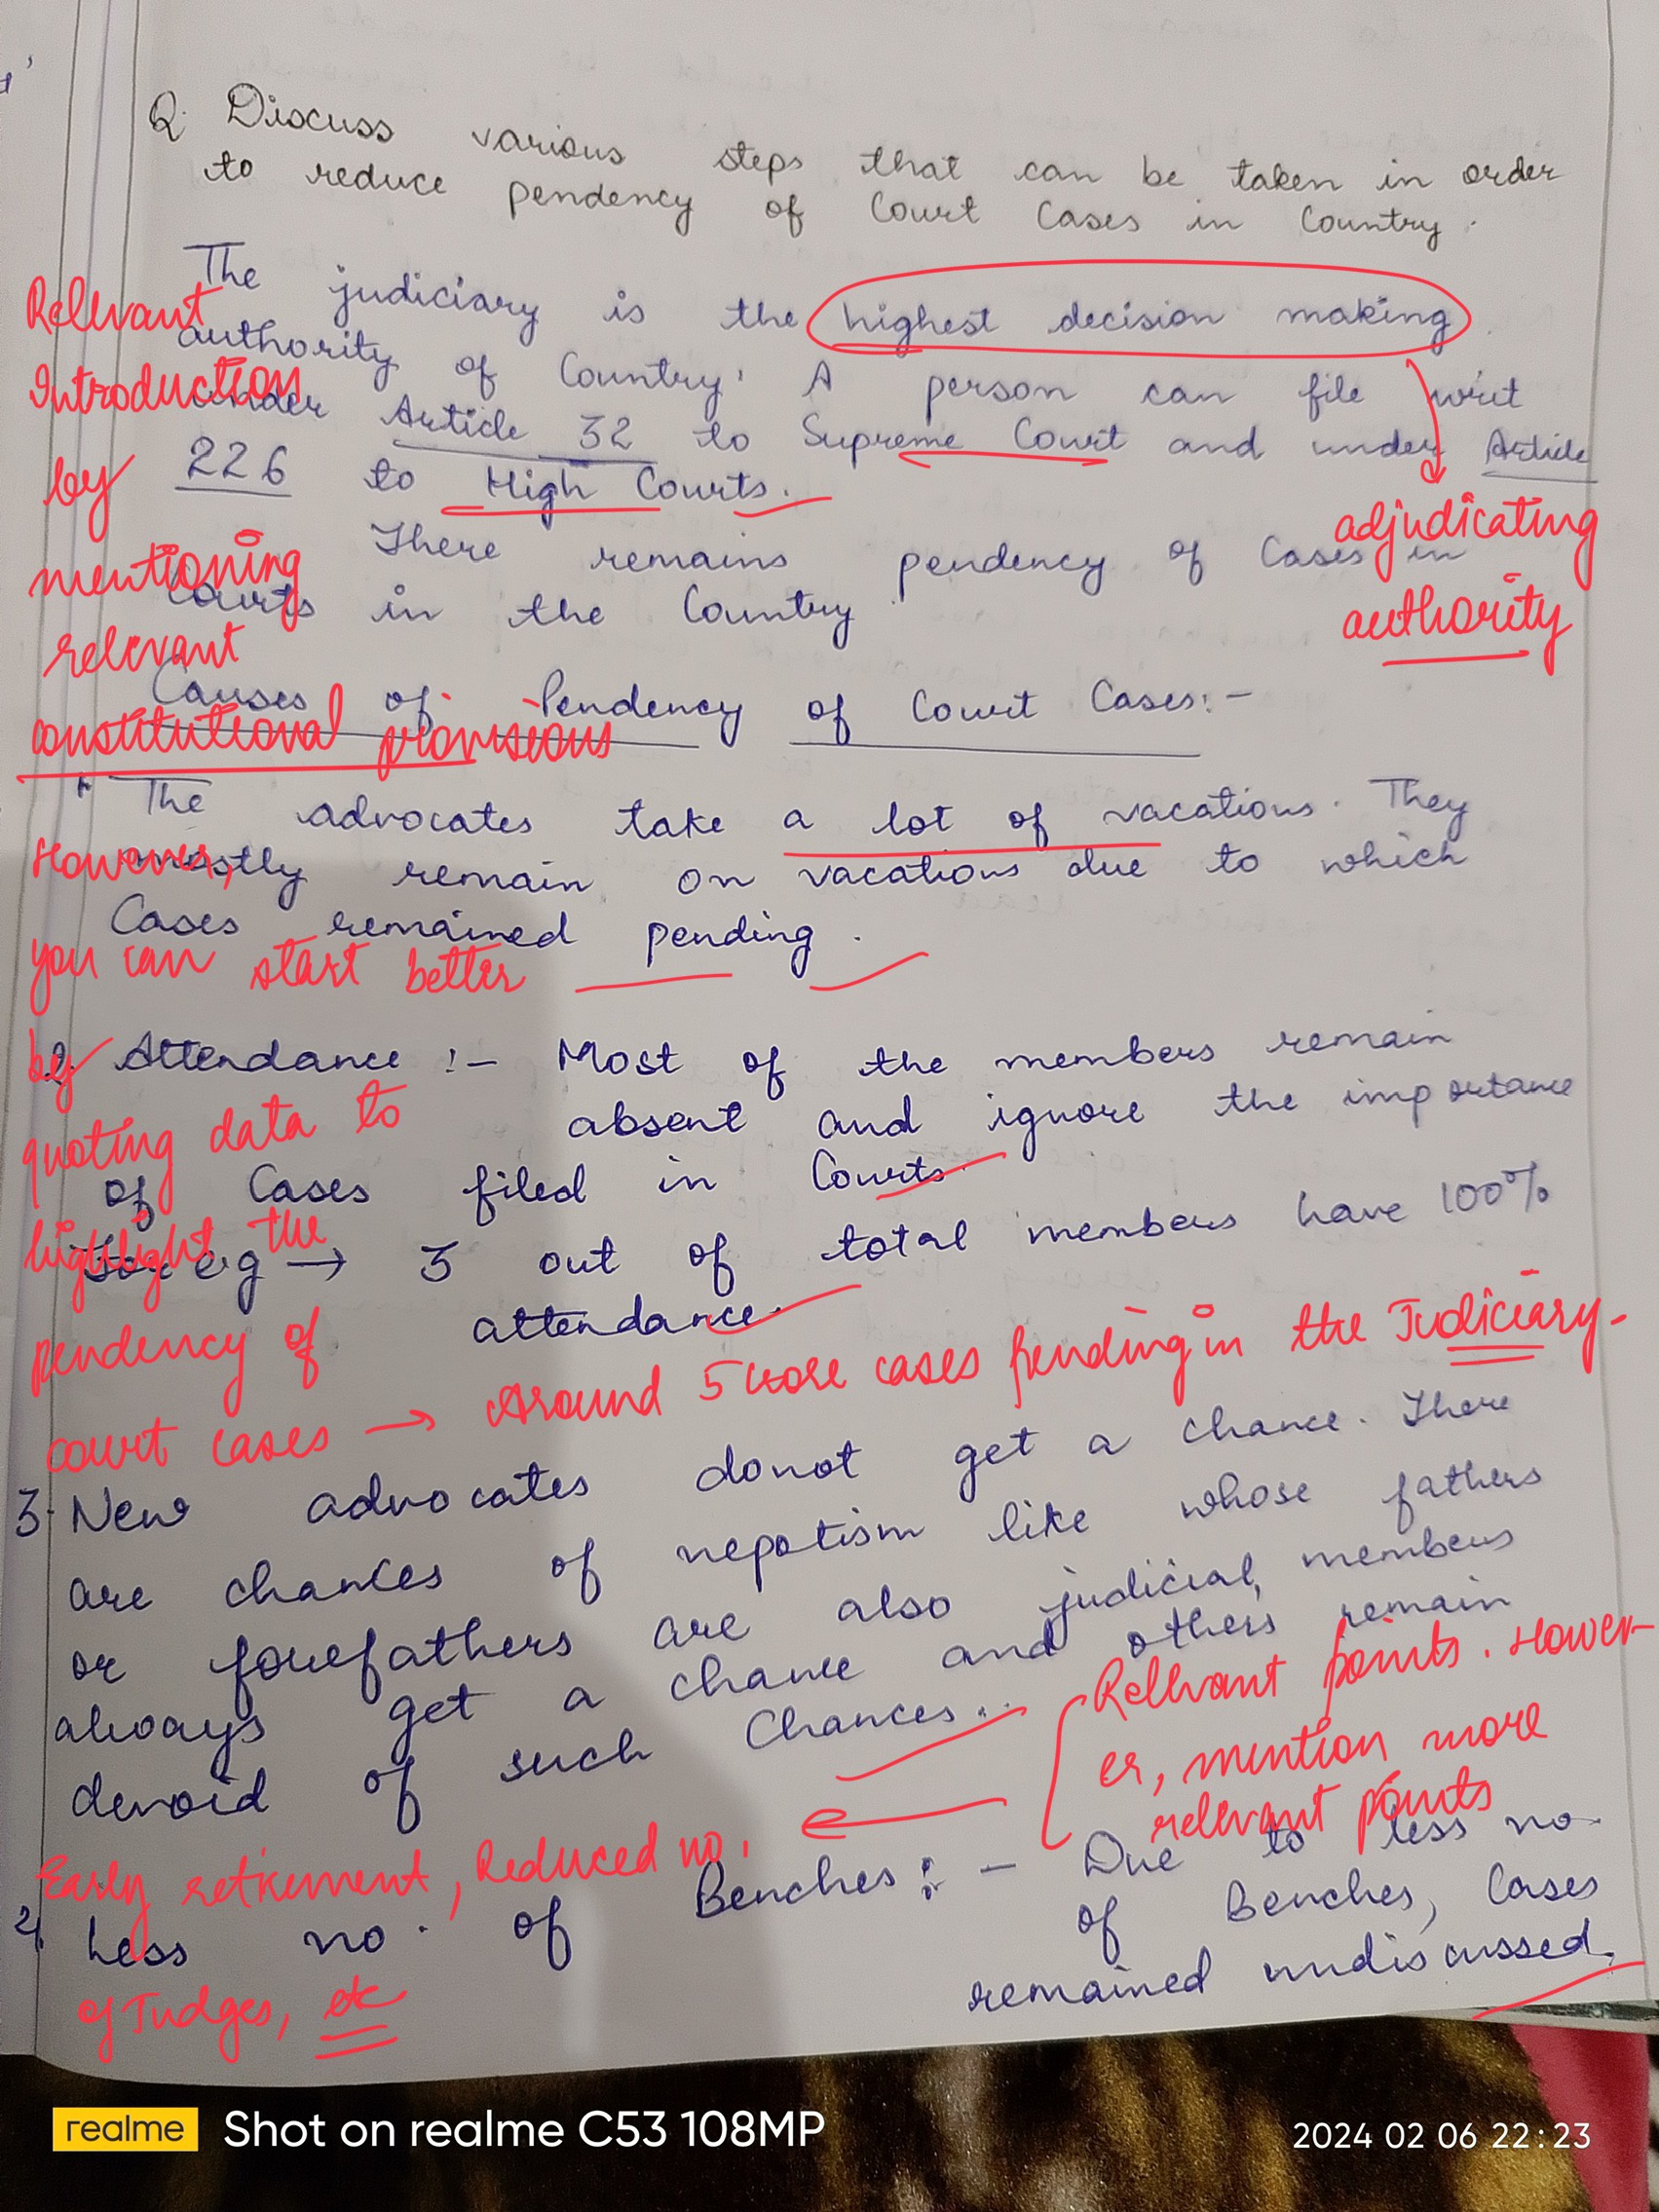 Q. Discuss various steps that can be taken in order
to reduce pendency of Court Cases in Country.
The judiciary is the highest decision making
authority of Country. A person can file writ
under Article 32 to Supreme Court and under Article
226 to High Courts.
There remains pendency of Cases in
Courts in the Country
Relevant
Introduction
by
mentioning
relevant
constitutional provisions
adjudicating
authority
Causes of Pendency of Court Cases:-
The advocates take a lot of vacations. They
mostly remain on vacations due to which
Cases remained pending.
However,
you can start better
by
quoting data to
highlight the
pendency of
court cases → Around 5 crore cases pending in the Judiciary.
2) Attendance :- Most of the members remain
absent and ignore the importance
of Cases filed in Courts.
For eg → 3 out of total members have 100%
attendance.
3. New advocates donot get a chance. There
are chances of nepotism like whose fathers
or forefathers are also judicial members
always get a chance and others remain
devoid of such Chances.
Relevant points. Howev-
er, mention more
relevant points
Early retirement, Reduced no.
of Judges, etc
4. Less no. of Benches :- Due to less no.
of Benches, Cases
remained undiscussed.
realme Shot on realme C53 108MP
2024 02 06 22:23